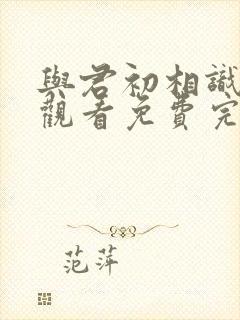 與君初相識
觀看免費完
范萍